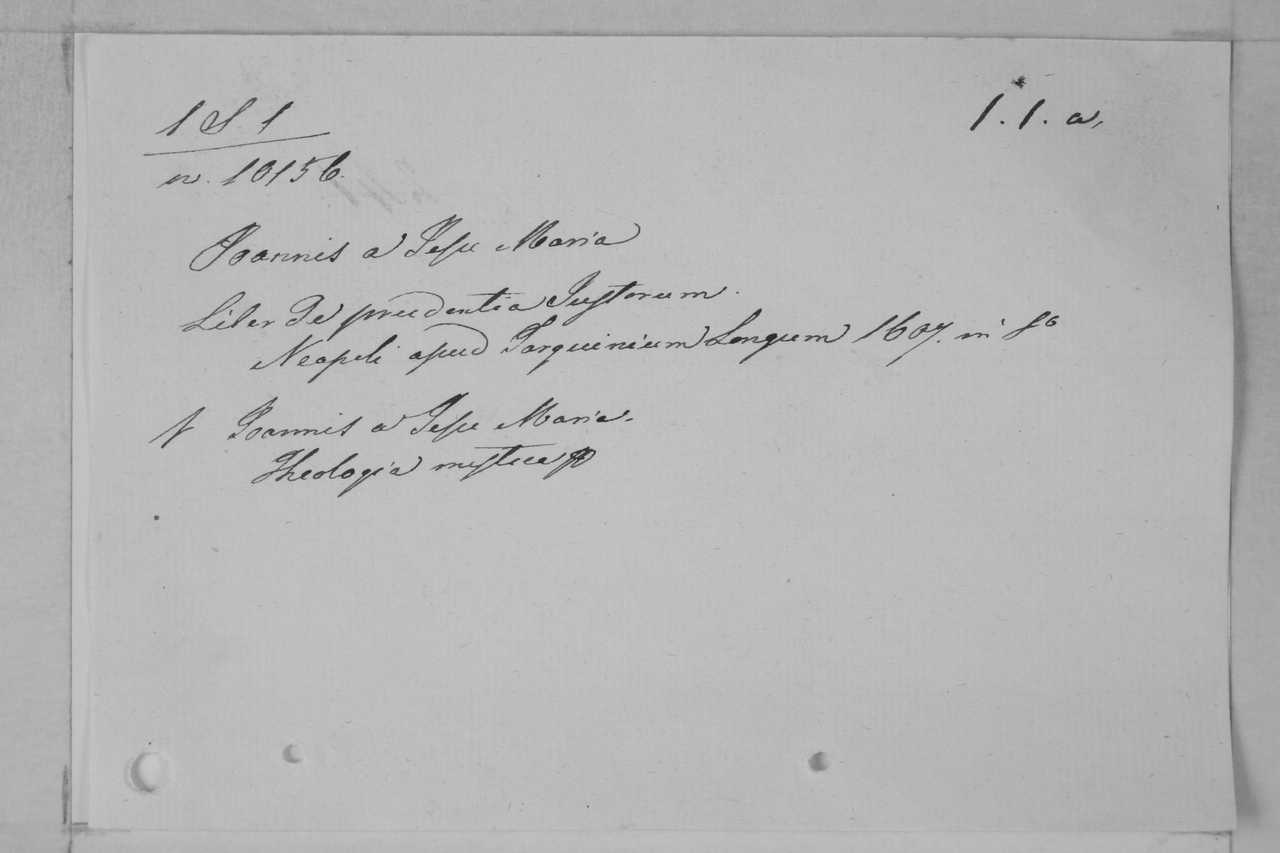 1 S 1
n. 10156.
1. 1. a,
Joannis a Jesu Maria
Liber de prudentia Justorum.
Neapoli apud Tarquinium Longum 1607. in 8º
Joannis a Jesu Maria.
Theologia mystica